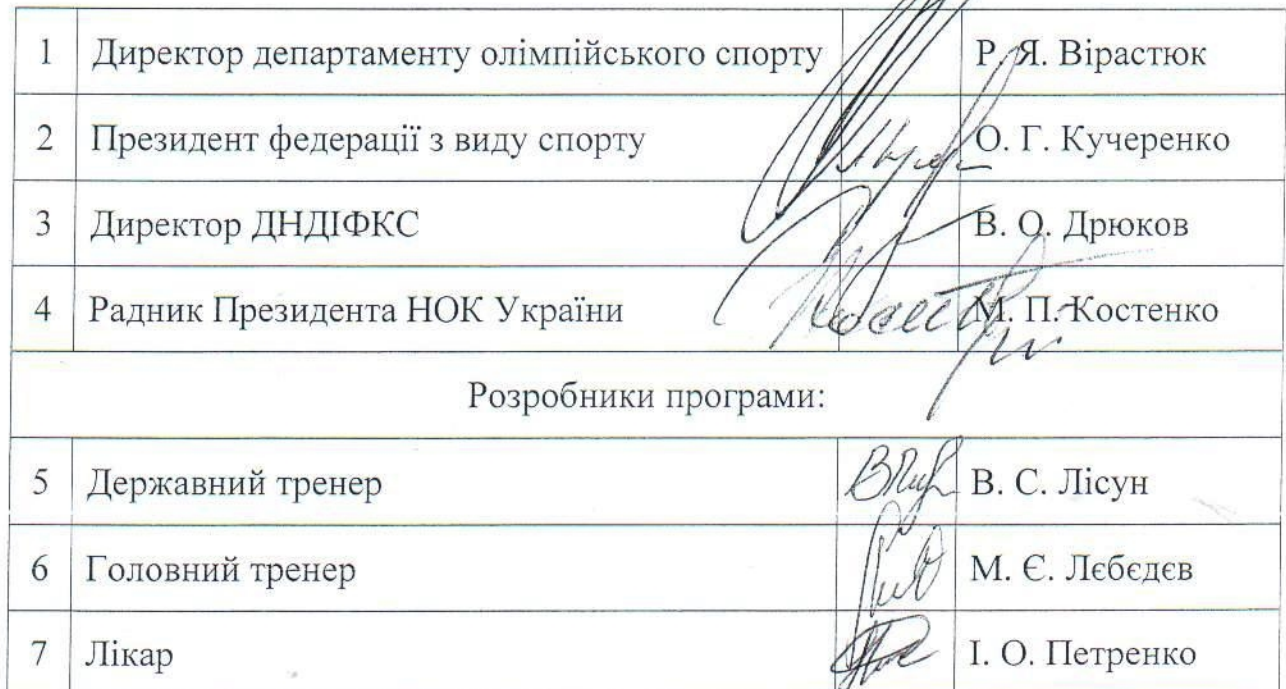 1 Директор департаменту олімпійського спорту Р. Я. Вірастюк
2 Президент федерації з виду спорту О. Г. Кучеренко
3 Директор ДНДІФКС В. О. Дрюков
4 Радник Президента НОК України М. П. Костенко
Розробники програми:
5 Державний тренер В. С. Лісун
6 Головний тренер М. Є. Лєбєдєв
7 Лікар І. О. Петренко